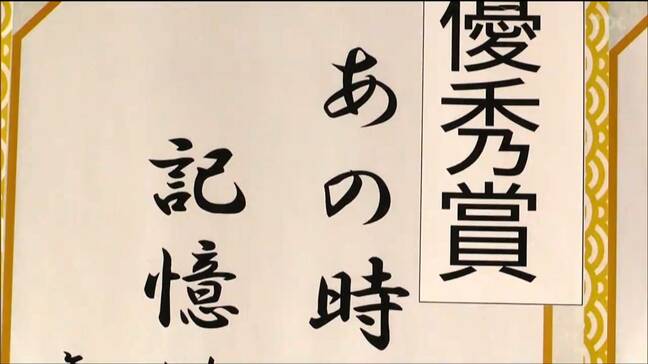 優秀賞
あの時
記憶